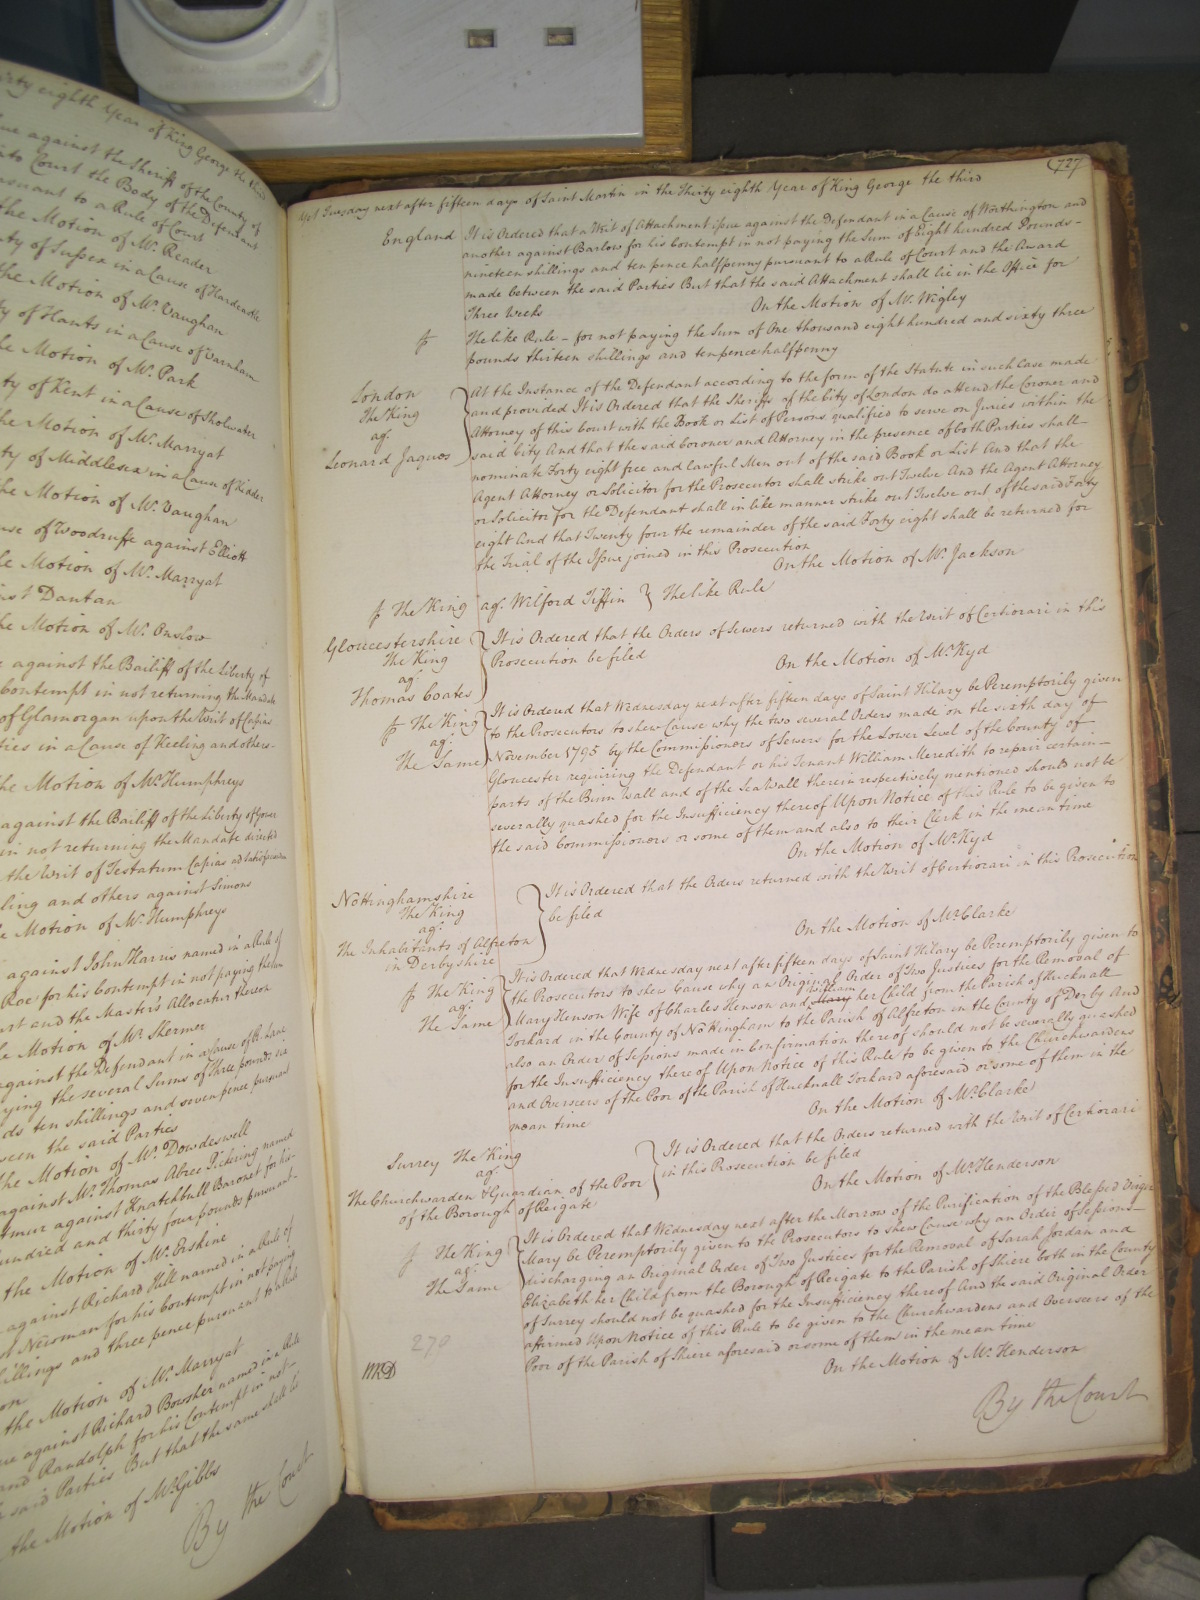 irty eighth Year of King George the third
ue against the Sheriff of the County of
into Court the Body of the Defendant
ursuant to a Rule of Court
the Motion of Mr. Reader
nty of Sussex in a Cause of Hardcastle
the Motion of Mr. Vaughan
ty of Hants in a Cause of Varnham
he Motion of Mr. Park
ty of Kent in a Cause of
he Motion of Mr. Marryat
ty of Middlesex in a Cause of Kidder
he Motion of Mr. Vaughan
use of Woodruffe against Elliott
he Motion of Mr. Marryat
nst Dantan
he Motion of Mr. Onslow
e against the Bailiff of the Liberty of
Contempt in not returning the Mandate
of Glamorgan upon the Writ of Capias
ties in a Cause of Keeling and others
he Motion of Mr. Humphreys
against the Bailiff of the Liberty of Gower
in not returning the Mandate directed
the Writ of Testatum Capias ad Satisfaciendum
ling and others against Simons
e Motion of Mr. Humphreys
against John Harris named in a Rule of
Roe for his Contempt in not paying the Sum
urt and the Master's Allocatur thereon
he Motion of Mr. Skermer
against the Defendant in a Cause of
ying the several Sums of Three pounds six
ds ten shillings and seven pence pursuant
seen the said Parties
the Motion of Mr. Dowdeswell
against Mr. Thomas Abree Pickering named
mur against Knatchbull Baronet for his
undred and thirty four pounds pursuant
the Motion of Mr. Erskine
against Richard Hill named in a Rule of
st Newman for his Contempt in not paying
hillings and three pence pursuant to a Rule
on
the Motion of Mr. Marryat
ue against Richard Bowsher named in a Rule
and Randolph for his Contempt in not
said Parties But that the same shall lie
the Motion of Mr. Gibbs
By the Court
727
Yet Tuesday next after fifteen days of Saint Martin in the Thirty eighth Year of King George the third
England It is Ordered that a Writ of Attachment issue against the Defendant in a Cause of Worthington and
another against Barlow for his Contempt in not paying the Sum of Eight hundred Pounds
nineteen shillings and ten pence halfpenny pursuant to a Rule of Court and the Award
made between the said Parties But that the said Attachment shall lie in the Office for
Three Weeks On the Motion of Mr. Wigley
The like Rule – for not paying the Sum of One thousand eight hundred and sixty three
pounds thirteen shillings and ten pence halfpenny
London
The King
agt.
Leonard Jaques
At the Instance of the Defendant according to the form of the Statute in such Case made
and provided It is Ordered that the Sheriffs of the City of London do attend the Coroner and
Attorney of this Court with the Book or List of Persons qualified to serve on Juries within the
said City And that the said Coroner and Attorney in the presence of both Parties shall
nominate Forty eight free and lawful Men out of the said Book or List And that the
Agent Attorney or Solicitor for the Prosecutor shall strike out Twelve And the Agent Attorney
or Solicitor for the Defendant shall in like manner strike out Twelve out of the said Forty
eight And that Twenty four the remainder of the said Forty eight shall be returned for
the Trial of the Issue joined in this Prosecution
On the Motion of Mr. Jackson
The King agt. Wilford Tiffin } The like Rule
Gloucestershire
The King
agt.
Thomas Coates
It is Ordered that the Orders of Sewers returned with the Writ of Certiorari in this
Prosecution be filed
On the Motion of Mr. Kyd
The King
agt.
The Same
It is Ordered that Wednesday next after fifteen days of Saint Hilary be Peremptorily given
to the Prosecutors to shew Cause why the two several Orders made on the sixth day of
November 1795 by the Commissioners of Sewers for the Lower Level of the County of
Gloucester requiring the Defendant or his Tenant William Meredith to repair certain
parts of the Wall and of the Sea Wall therein respectively mentioned should not be
severally quashed for the Insufficiency thereof Upon Notice of this Rule to be given to
the said Commissioners or some of them and also to their Clerk in the mean time
On the Motion of Mr. Kyd
Nottinghamshire
The King
agt.
The Inhabitants of Alfreton
in Derbyshire
It is Ordered that the Orders returned with the Writ of Certiorari in this Prosecution
be filed
On the Motion of Mr. Clarke
The King
agt.
The Same
It is Ordered that Wednesday next after fifteen days of Saint Hilary be Peremptorily given to
the Prosecutors to shew Cause why an Original Order of Two Justices for the Removal of
Mary Henson Wife of Charles Henson and Mary William her Child from the Parish of Hucknall
Torkard in the County of Nottingham to the Parish of Alfreton in the County of Derby And
also an Order of Sessions made in Confirmation thereof should not be severally quashed
for the Insufficiency thereof Upon Notice of this Rule to be given to the Churchwardens
and Overseers of the Poor of the Parish of Hucknall Torkard aforesaid or some of them in the
mean time
On the Motion of Mr. Clarke
Surrey The King
agt.
The Churchwarden & Guardian of the Poor
of the Borough of Reigate
It is Ordered that the Orders returned with the Writ of Certiorari
in this Prosecution be filed
On the Motion of Mr. Henderson
The King
agt.
The Same
It is Ordered that Wednesday next after the Morrow of the Purification of the Blessed Virgin
Mary be Peremptorily given to the Prosecutors to shew Cause why an Order of Sessions
discharging an Original Order of Two Justices for the Removal of Sarah Jordan and
Elizabeth her Child from the Borough of Reigate to the Parish of Shiere both in the County
of Surrey should not be quashed for the Insufficiency thereof And the said Original Order
affirmed Upon Notice of this Rule to be given to the Churchwardens and Overseers of the
Poor of the Parish of Shiere aforesaid or some of them in the mean time
On the Motion of Mr. Henderson
270
MD
By the Court